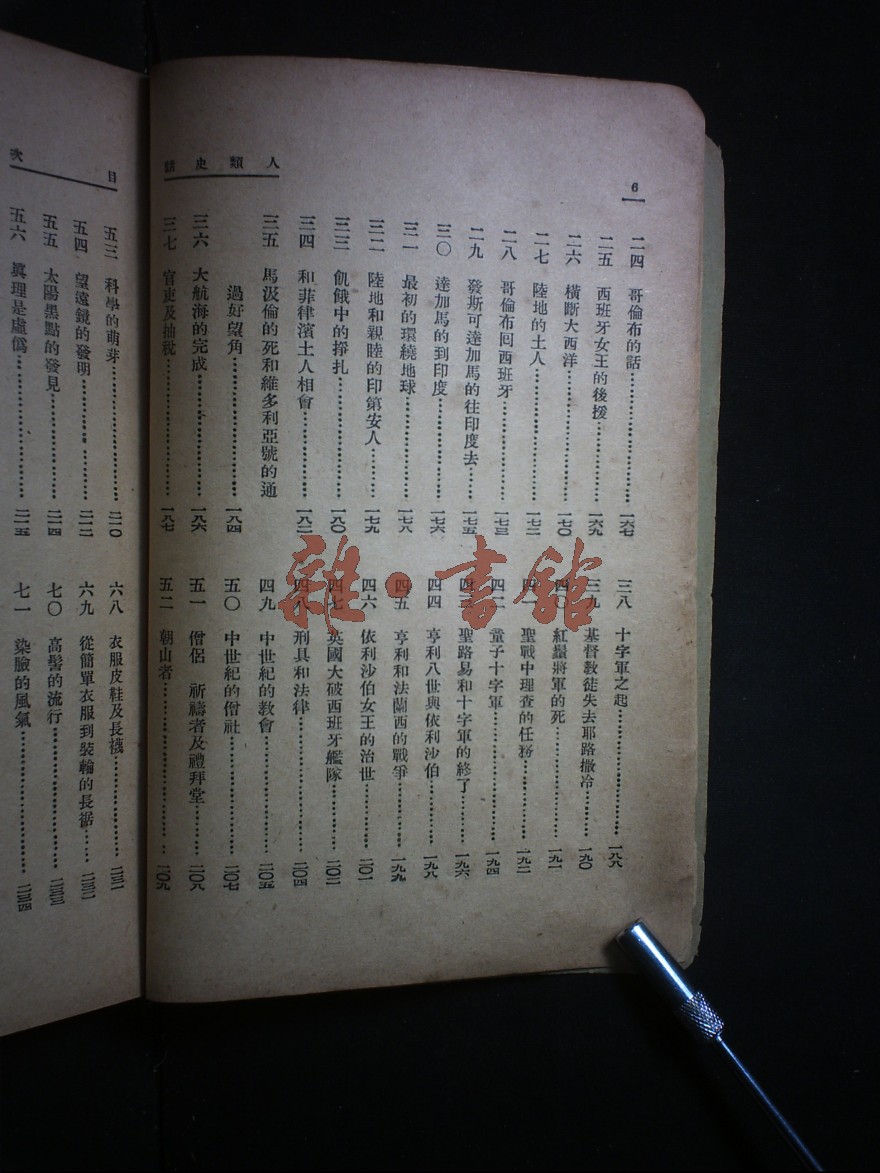 人類史話
6
二四 哥倫布的話………………一六七
二五 西班牙女王的後援………一六九
二六 橫斷大西洋………………一七〇
二七 陸地的土人………………一七二
二八 哥倫布囘西班牙…………一七三
二九 發斯可達加馬的往印度去……一七五
三〇 達加馬的到印度…………一七六
三一 最初的環繞地球…………一七八
三二 陸地和親睦的印第安人……一七九
三三 飢餓中的掙扎……………一八〇
三四 和菲律濱土人相會………一八二
三五 馬汲倫的死和維多利亞號的通
過好望角………………一八四
三六 大航海的完成……………一八六
三七 官吏及抽稅………………一八七
三八 十字軍之起………………一八八
三九 基督教徒失去耶路撒冷……一九〇
四〇 紅鬚將軍的死……………一九一
四一 聖戰中理查的任務………一九二
四二 童子十字軍………………一九四
四三 聖路易和十字軍的終了……一九六
四四 亨利八世與依利沙伯………一九八
四五 亨利和法蘭西的戰爭………一九九
四六 依利沙伯女王的治世………二〇一
四七 英國大破西班牙艦隊………二〇二
四八 刑具和法律………………二〇四
四九 中世紀的教會……………二〇五
五〇 中世紀的僧社……………二〇七
五一 僧侶 祈禱者及禮拜堂………二〇八
五二 朝山者……………………二〇九
目次
五三 科學的萌芽………………二一〇
五四 望遠鏡的發明……………二一二
五五 太陽黑點的發見…………二一四
五六 眞理是虛僞………………二一五
六八 衣服皮鞋及長襪…………二三一
六九 從簡單衣服到裝輪的長裾……二三二
七〇 高髻的流行………………二三三
七一 染臉的風氣………………二三四
雜·書館